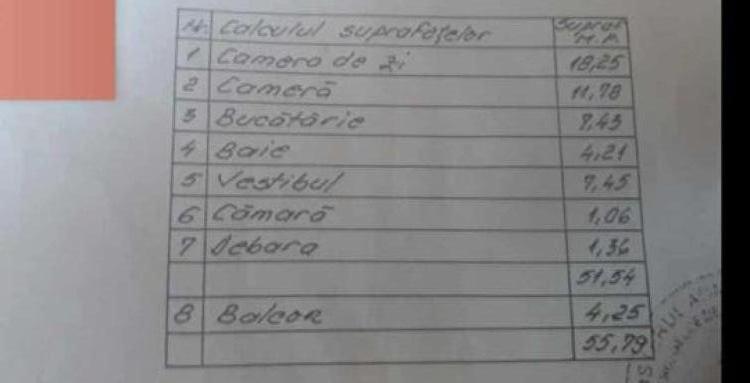 Nr. Calculul suprafețelor Supraf. M.P.
1 Camera de zi 18,25
2 Cameră 11,78
3 Bucătărie 7,43
4 Baie 4,21
5 Vestibul 7,45
6 Cămară 1,06
7 Debara 1,36
51,54
8 Balcon 4,25
55,79